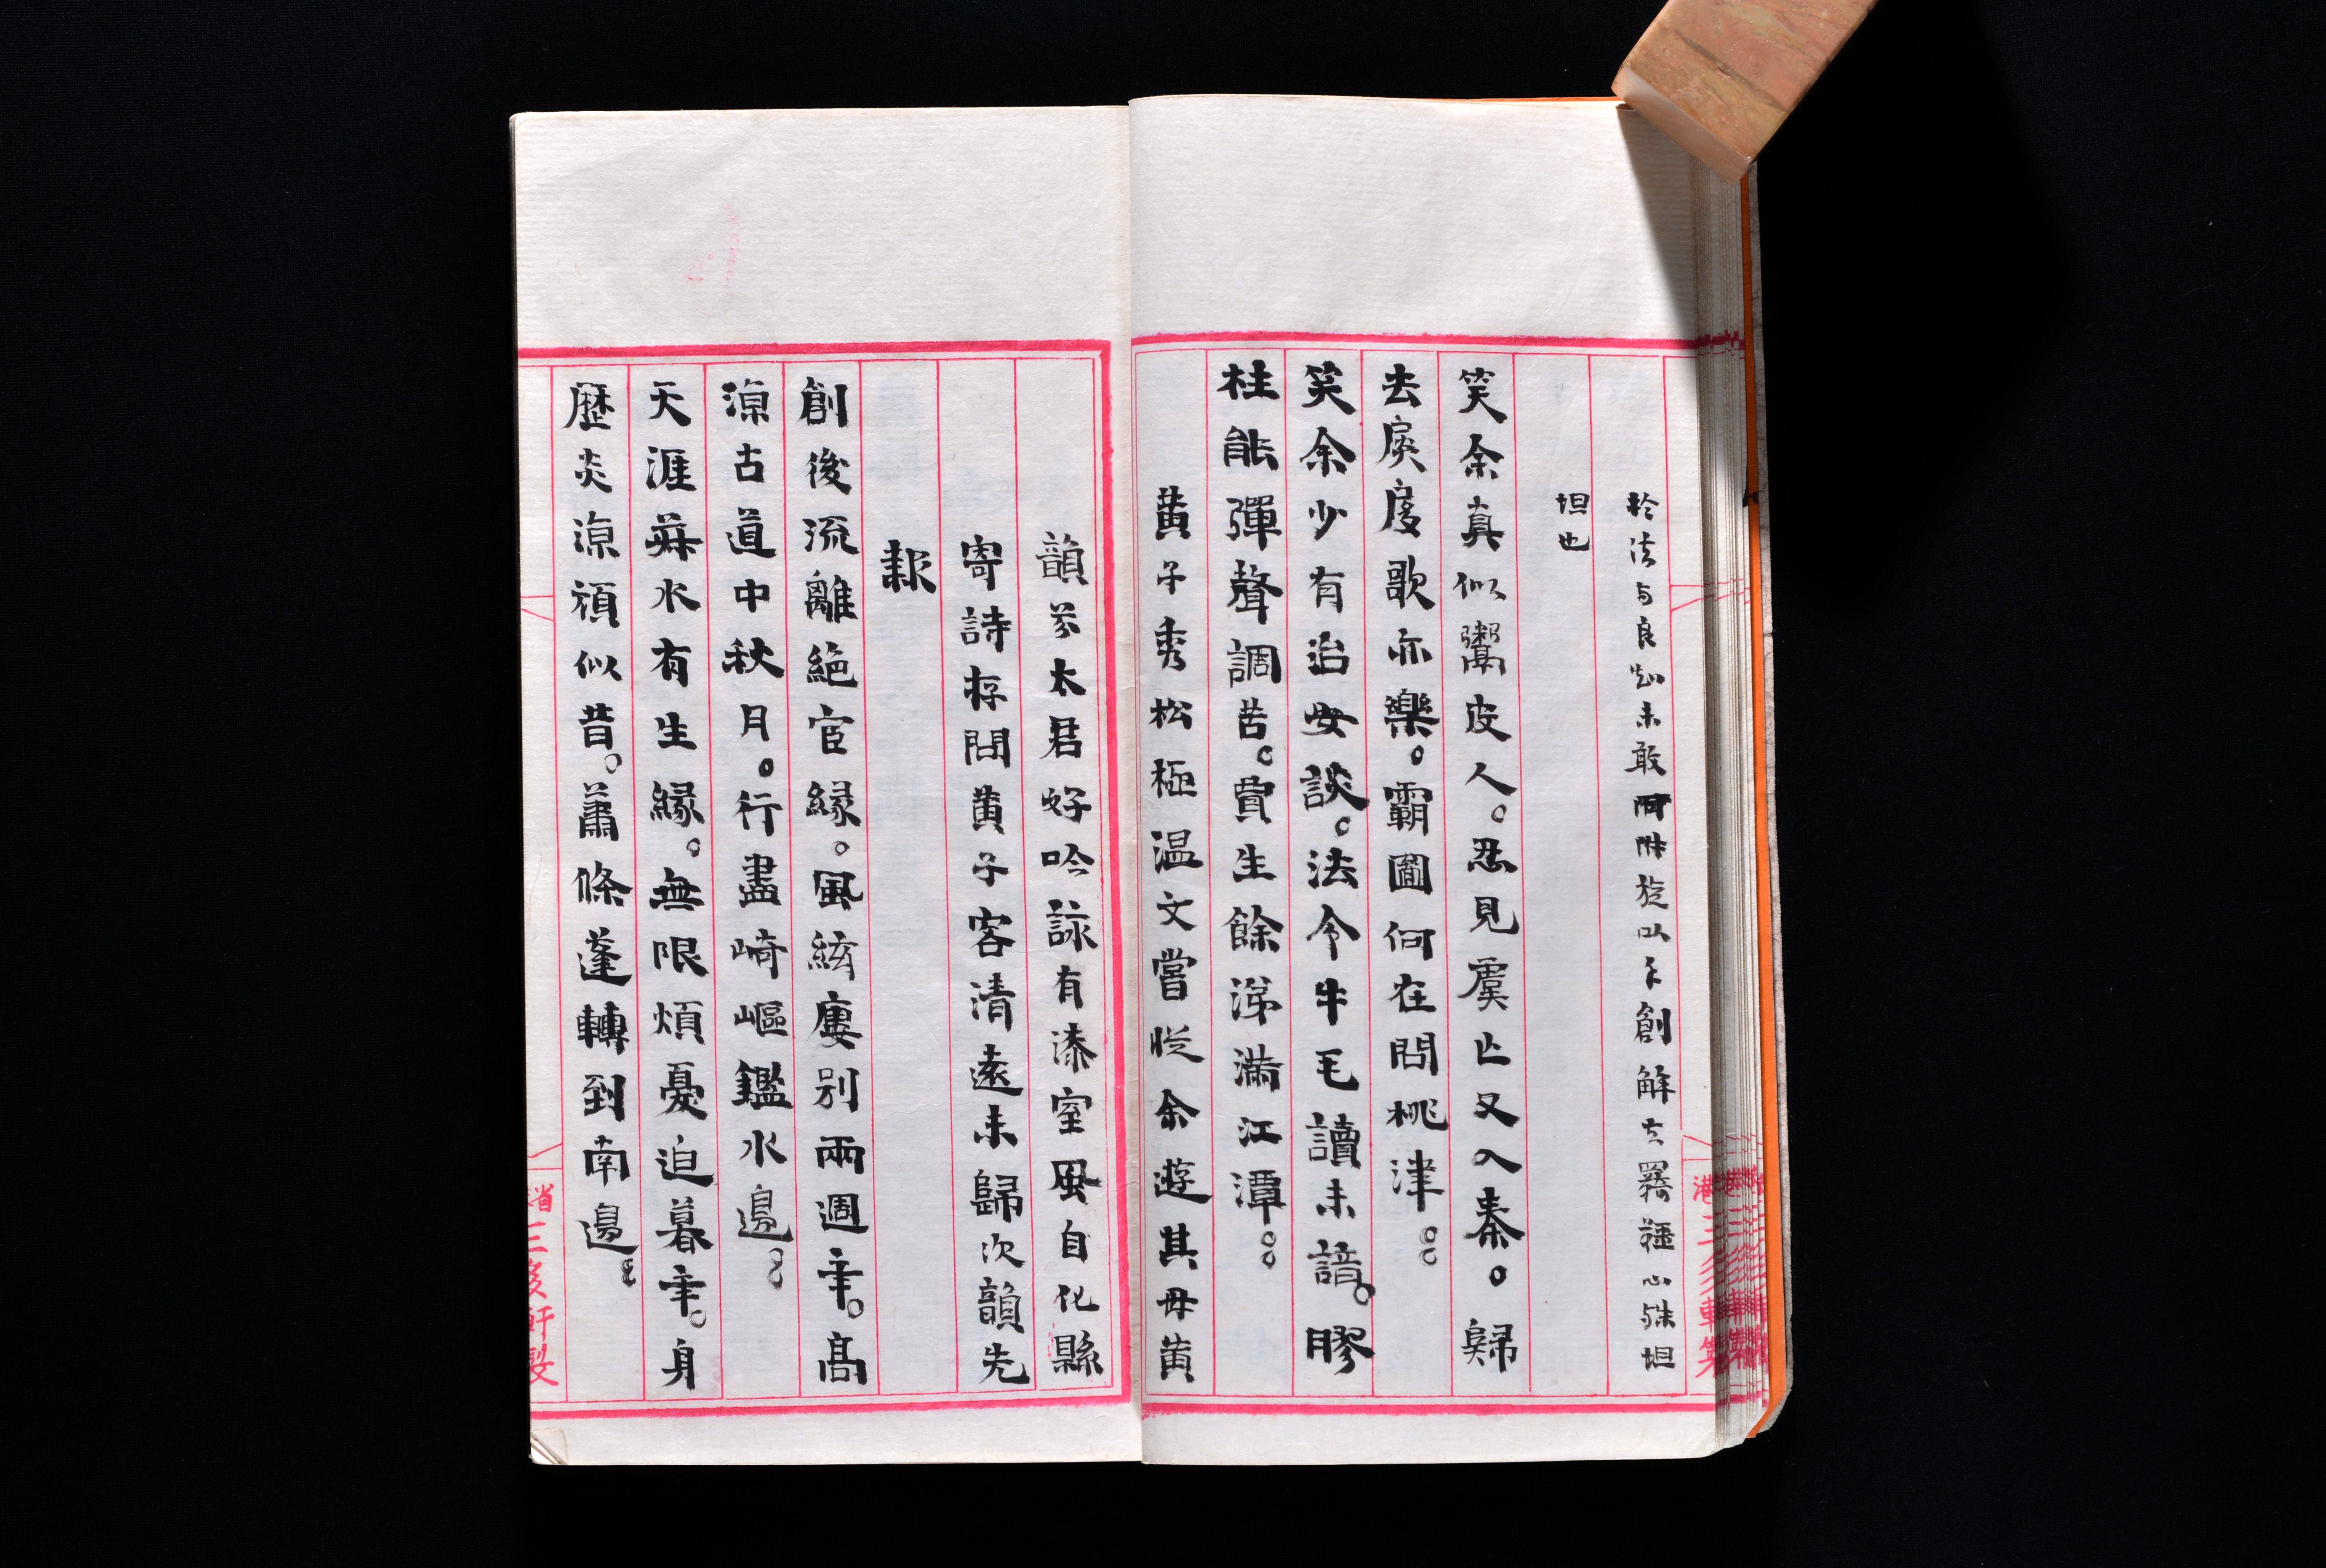 於法与良知未敢阿附旋以不創解去羈韁心殊坦
坦也
笑余真似鬻皮人。忍見虞亡又入秦。歸
去扊扅歌亦樂。霸圖何在問桃津。。
笑余少有治安談。法令牛毛讀未諳。膠
柱能彈聲調苦。賈生餘涕滿江潭。。
黃子秀松極温文嘗從余遊其母黃
韻芬太君好吟詠有漆室風自化縣
寄詩存問黃子客清遠未歸次韻先
報
創後流離絕宦緣。風絃慶別兩週年。高
涼古道中秋月。行盡崎嶇鑑水邊。。
天涯萍水有生緣。無限煩憂迫暮年。身
歷炎涼頑似昔。蕭條蓬轉到南邊。。
省三多軒製
港三多軒製